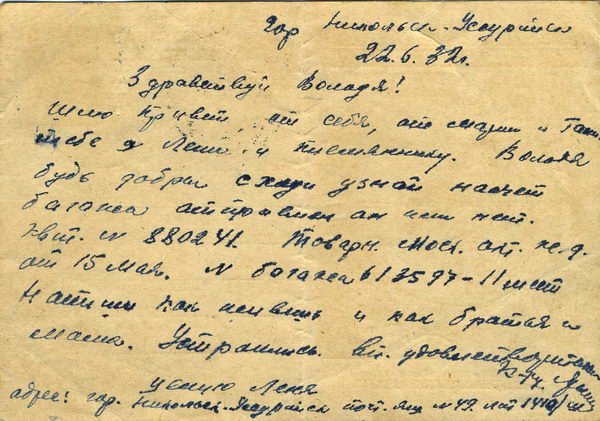 гор Никольск-Уссурийск
22.6.32г.
Здравствуй Володя!
шлю привет, от себя, от Марии и Тани
тебе и Лене и племяннику. Володя
будь добры сходи узнай насчет
багажа отправлен ан или нет.
Квит. № 880241. Товарн. Моск. ж.д.
от 15 мая. № багажа 613597-11 мест
Напиши как живешь и как братья и
мама. Устроились вп. удовлетворительно
целую Леня
адрес: гор. Никольск-Уссурийск поч. ящ №49. лит 1410/ш